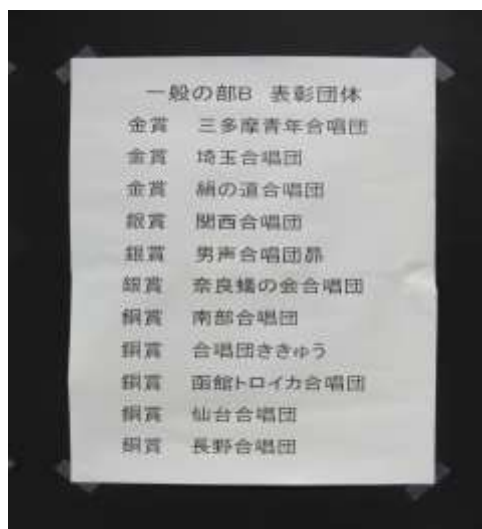 一般の部B 表彰団体
金賞 三多摩青年合唱団
金賞 埼玉合唱団
金賞 絹の道合唱団
銀賞 関西合唱団
銀賞 男声合唱団昴
銀賞 奈良蟻の会合唱団
銅賞 南部合唱団
銅賞 合唱団ききゅう
銅賞 函館トロイカ合唱団
銅賞 仙台合唱団
銅賞 長野合唱団